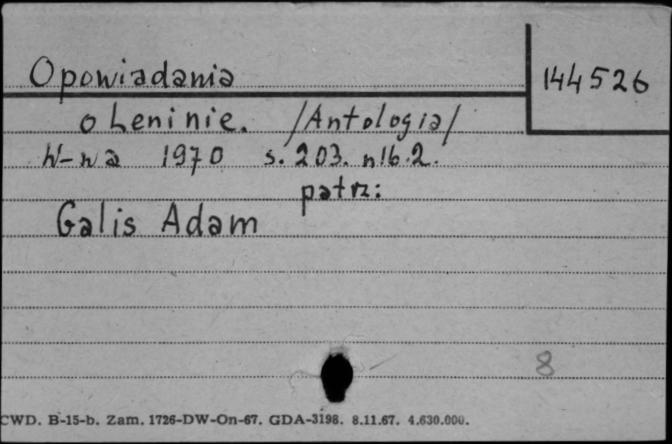 Opowiadania
144526
o Leninie. /Antologia/
W-wa 1970 s. 203. nlb.2.
patrz:
Galis Adam
8
CWD. B-15-b. Zam. 1726-DW-On-67. GDA-3198. 8.11.67. 4.630.000.